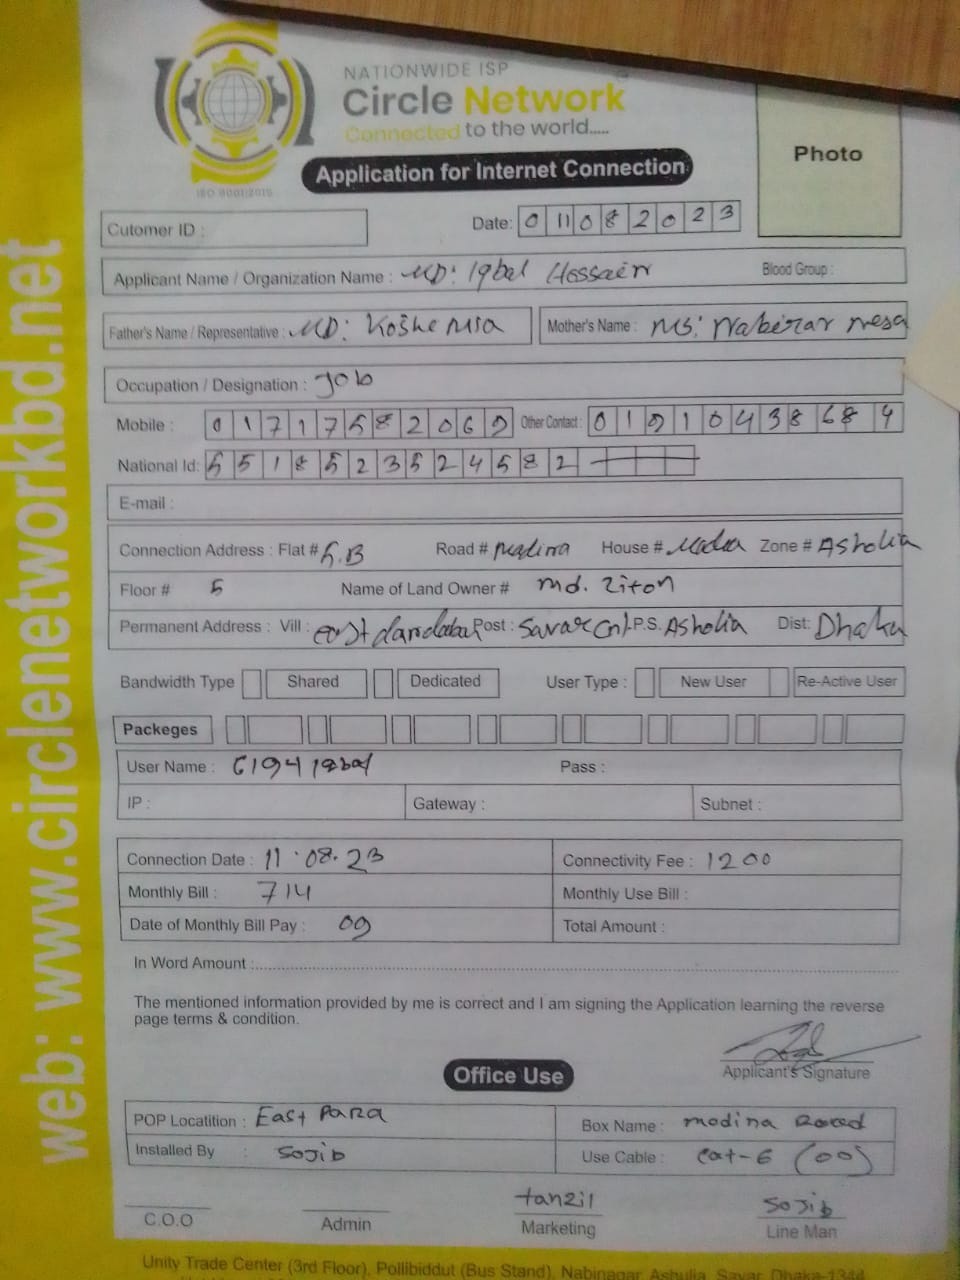 NATIONWIDE ISP
Circle Network
Connected to the world.....
ISO 9001:2015
Application for Internet Connection
Photo
Cutomer ID :
Date: 01 10 8 2 0 2 3
Applicant Name / Organization Name : MD: Iqbal Hossain
Blood Group :
Father's Name / Representative : MD: Koshe
Mother's Name : MS: nesa
Occupation / Designation : Job
Mobile : 0 1 7 1 7 5 8 2 0 6 9
Other Contact : 0 1 9 1 0 4 3 8 6 8 4
National Id: 5 5 1 8 5 2 3 5 2 4 5 8 2
E-mail :
Connection Address : Flat # 5.B Road # Madina House # Zone # Asholia
Floor # 5 Name of Land Owner # md. Liton
Permanent Address : Vill : east Post : Savar Cnt. P.S. Asholia Dist: Dhaka
Bandwidth Type Shared Dedicated User Type : New User Re-Active User
Packeges
User Name : 6194 iqbal Pass :
IP : Gateway : Subnet :
Connection Date : 11.08.23 Connectivity Fee : 1200
Monthly Bill : 714 Monthly Use Bill :
Date of Monthly Bill Pay : 09 Total Amount :
In Word Amount :
The mentioned information provided by me is correct and I am signing the Application learning the reverse
page terms & condition.
Applicant's Signature
Office Use
POP Locatition : East Para Box Name : modina Road
Installed By : Sojib Use Cable : Cat-6 (00)
tanzil Sojib
C.O.O Admin Marketing Line Man
Unity Trade Center (3rd Floor), Pollibiddut (Bus Stand), Nabinagar, Ashulia, Savar, Dhaka-1344
web: www.circlenetworkbd.net